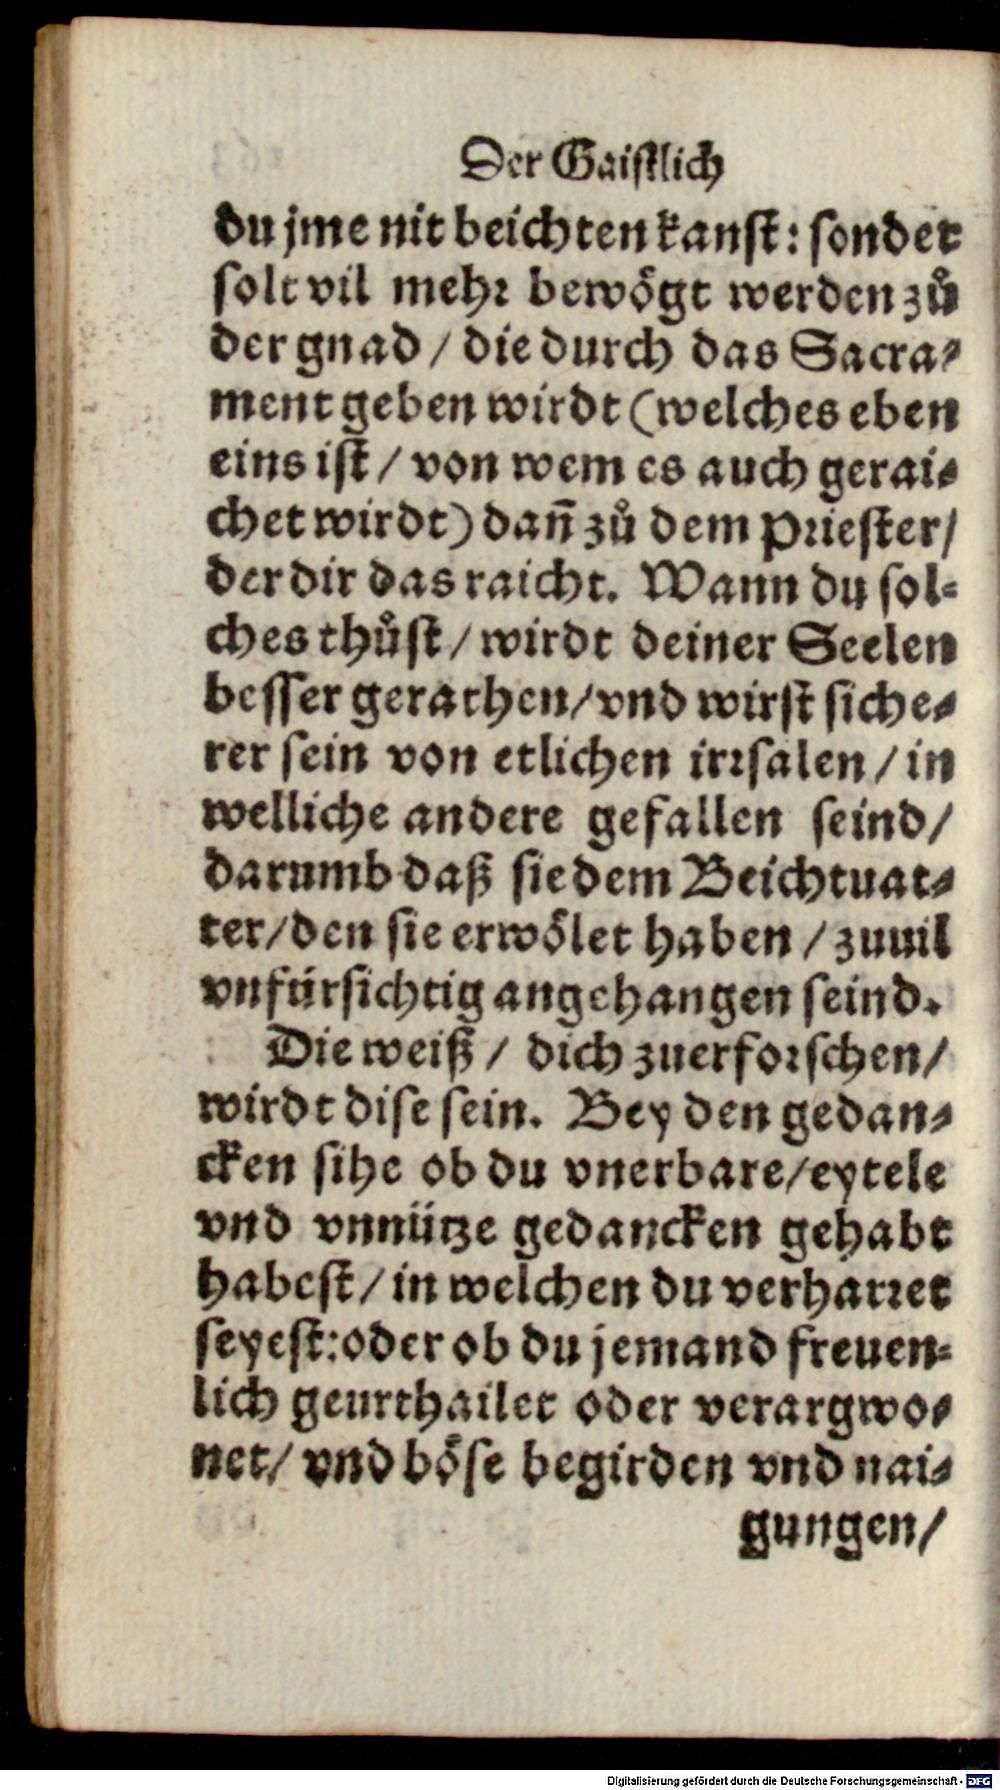 Der Gaiſtlich
du jme nit beichten kanſt: ſonder
ſolt vil mehꝛ bewoͤgt werden zů
der gnad / die durch das Sacra⸗
ment geben wirdt (welches eben
eins iſt / von wem es auch gerai⸗
chet wirdt) dañ zů dem Pꝛieſter/
der dir das raicht. Wann du ſol⸗
ches thůſt / wirdt deiner Seelen
beſſer gerathen/vnd wirſt ſiche⸗
rer ſein von etlichen irꝛſalen / in
welliche andere gefallen ſeind/
darumb daß ſie dem Beichtuat⸗
ter/den ſie erwoͤlet haben / zuuil
vnfürſichtig angehangen ſeind.
Die weiß / dich zuerfoꝛſchen/
wirdt diſe ſein. Bey den gedan⸗
cken ſihe ob du vnerbare/eytele
vnd vnnütze gedancken gehabt
habeſt / in welchen du verharꝛet
ſeyeſt: oder ob du jemand freuen⸗
lich geurthailet oder verargwo⸗
net/ vnd boͤſe begirden vnd nai⸗
gungen/
Digitalisierung gefördert durch die Deutsche Forschungsgemeinschaft - DFG